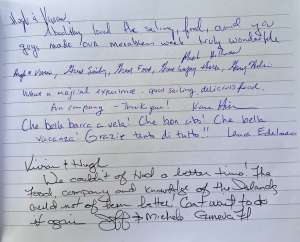 Hugh & Vivian,
Absolutely loved the sailing, food, and you
guys made our marathon week truly wonderful
Hugh & Vivian, Great Sailing, Great Food, Great
Have a magical experience - good sailing, delicious food,
Fun company - Thank you!
Che bella barca a vela! Che bon cibo! Che bella
vacanza! Grazie tanto di tutto!! Laura Edelman
Vivian & Hugh
We couldn't of Had a better time! The
food, company and knowledge of the Islands
could not of been better. Can't wait to do
it again Jeff & Michele Geneva Fl